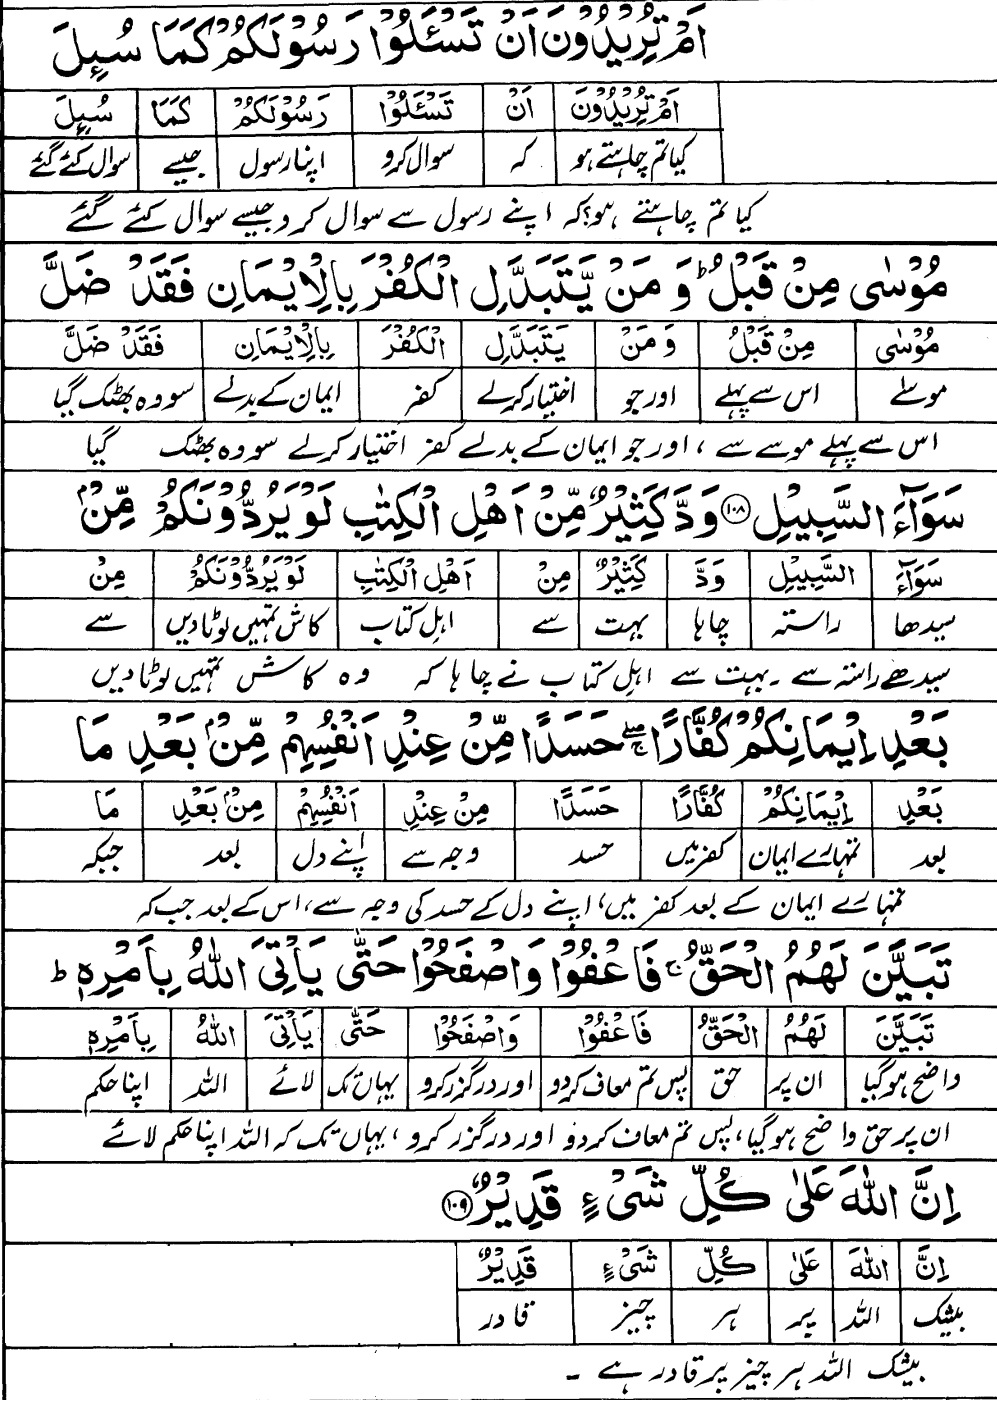 اَمْ تُرِيْدُوْنَ اَنْ تَسْـَٔلُوْا رَسُوْلَكُمْ كَمَا سُىِٕلَ
اَمْ تُرِيْدُوْنَ اَنْ تَسْـَٔلُوْا رَسُوْلَكُمْ كَمَا سُىِٕلَ
کیا تم چاہتے ہو کہ سوال کرو اپنا رسول جیسے سوال کئے گئے
کیا تم چاہتے ہو؟ کہ اپنے رسول سے سوال کرو جیسے سوال کئے گئے
مُوْسٰى مِنْ قَبْلُ ؕ وَ مَنْ يَّتَبَدَّلِ الْكُفْرَ بِالْاِيْمَانِ فَقَدْ ضَلَّ
مُوْسٰى مِنْ قَبْلُ وَ مَنْ يَتَبَدَّلِ الْكُفْرَ بِالْاِيْمَانِ فَقَدْ ضَلَّ
موسٰے اس سے پہلے اور جو اختیار کرلے کفر ایمان کے بدلے سو وہ بھٹک گیا
اس سے پہلے موسے سے ، اور جو ایمان کے بدلے کفر اختیار کرلے سو وہ بھٹک گیا
سَوَآءَ السَّبِيْلِ ۝۱۰۸ وَدَّ كَثِيْرٌ مِّنْ اَهْلِ الْكِتٰبِ لَوْ يَرُدُّوْنَكُمْ مِّنْۢ
سَوَآءَ السَّبِيْلِ وَدَّ كَثِيْرٌ مِنْ اَهْلِ الْكِتٰبِ لَوْ يَرُدُّوْنَكُمْ مِنْ
سیدھا راستہ چاہا بہت سے اہل کتاب کاش تمہیں لوٹا دیں سے
سیدھے راستہ سے ۔ بہت سے اہل کتاب نے چاہا کہ وہ کاش تمہیں لوٹا دیں
بَعْدِ اِيْمَانِكُمْ كُفَّارًا ۖۚ حَسَدًا مِّنْ عِنْدِ اَنْفُسِهِمْ مِّنْۢ بَعْدِ مَا
بَعْدِ اِيْمَانِكُمْ كُفَّارًا حَسَدًا مِنْ عِنْدِ اَنْفُسِهِمْ مِنْۢ بَعْدِ مَا
بعد تمہارے ایمان کفر میں حسد وجہ سے اپنے دل بعد جبکہ
تمہارے ایمان کے بعد کفر میں، اپنے دل کے حسد کی وجہ سے، اس کے بعد جب کہ
تَبَيَّنَ لَهُمُ الْحَقُّ ۚ فَاعْفُوْا وَاصْفَحُوْا حَتّٰى يَاْتِيَ اللّٰهُ بِاَمْرِهٖ ؕ
تَبَيَّنَ لَهُمُ الْحَقُّ فَاعْفُوْا وَاصْفَحُوْا حَتّٰى يَاْتِيَ اللّٰهُ بِاَمْرِهٖ
واضح ہوگیا ان پر حق پس تم معاف کردو اور درگزر کرو یہاں تک لائے اللہ اپنا حکم
ان پر حق واضح ہوگیا، پس تم معاف کردو اور درگزر کرو، یہاں تک کہ اللہ اپنا حکم لائے
اِنَّ اللّٰهَ عَلٰى كُلِّ شَيْءٍ قَدِيْرٌ ۝۱۰۹
اِنَّ اللّٰهَ عَلٰى كُلِّ شَيْءٍ قَدِيْرٌ
بیشک اللہ پر ہر چیز قادر
بیشک اللہ ہر چیز پر قادر ہے ۔